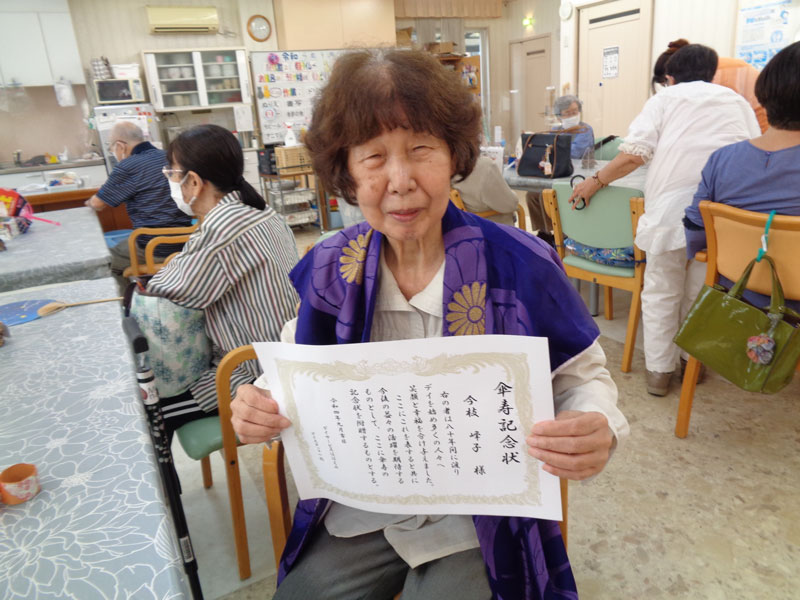 傘寿記念状
今枝 峰子 様
右の者は八十年間に渡り
デイを始め多くの人々へ
笑顔と幸福を分け与えました。
ここにこれを表すると共に
今後の益々の活躍を期待する
ものとして、ここに傘寿の
記念状を附贈するものとする。
令和四年九月吉日